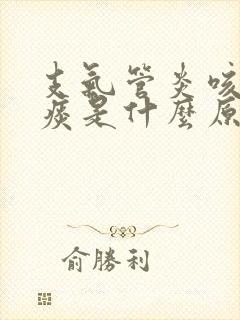 支氣管炎咳
痰是什麼原
俞勝利